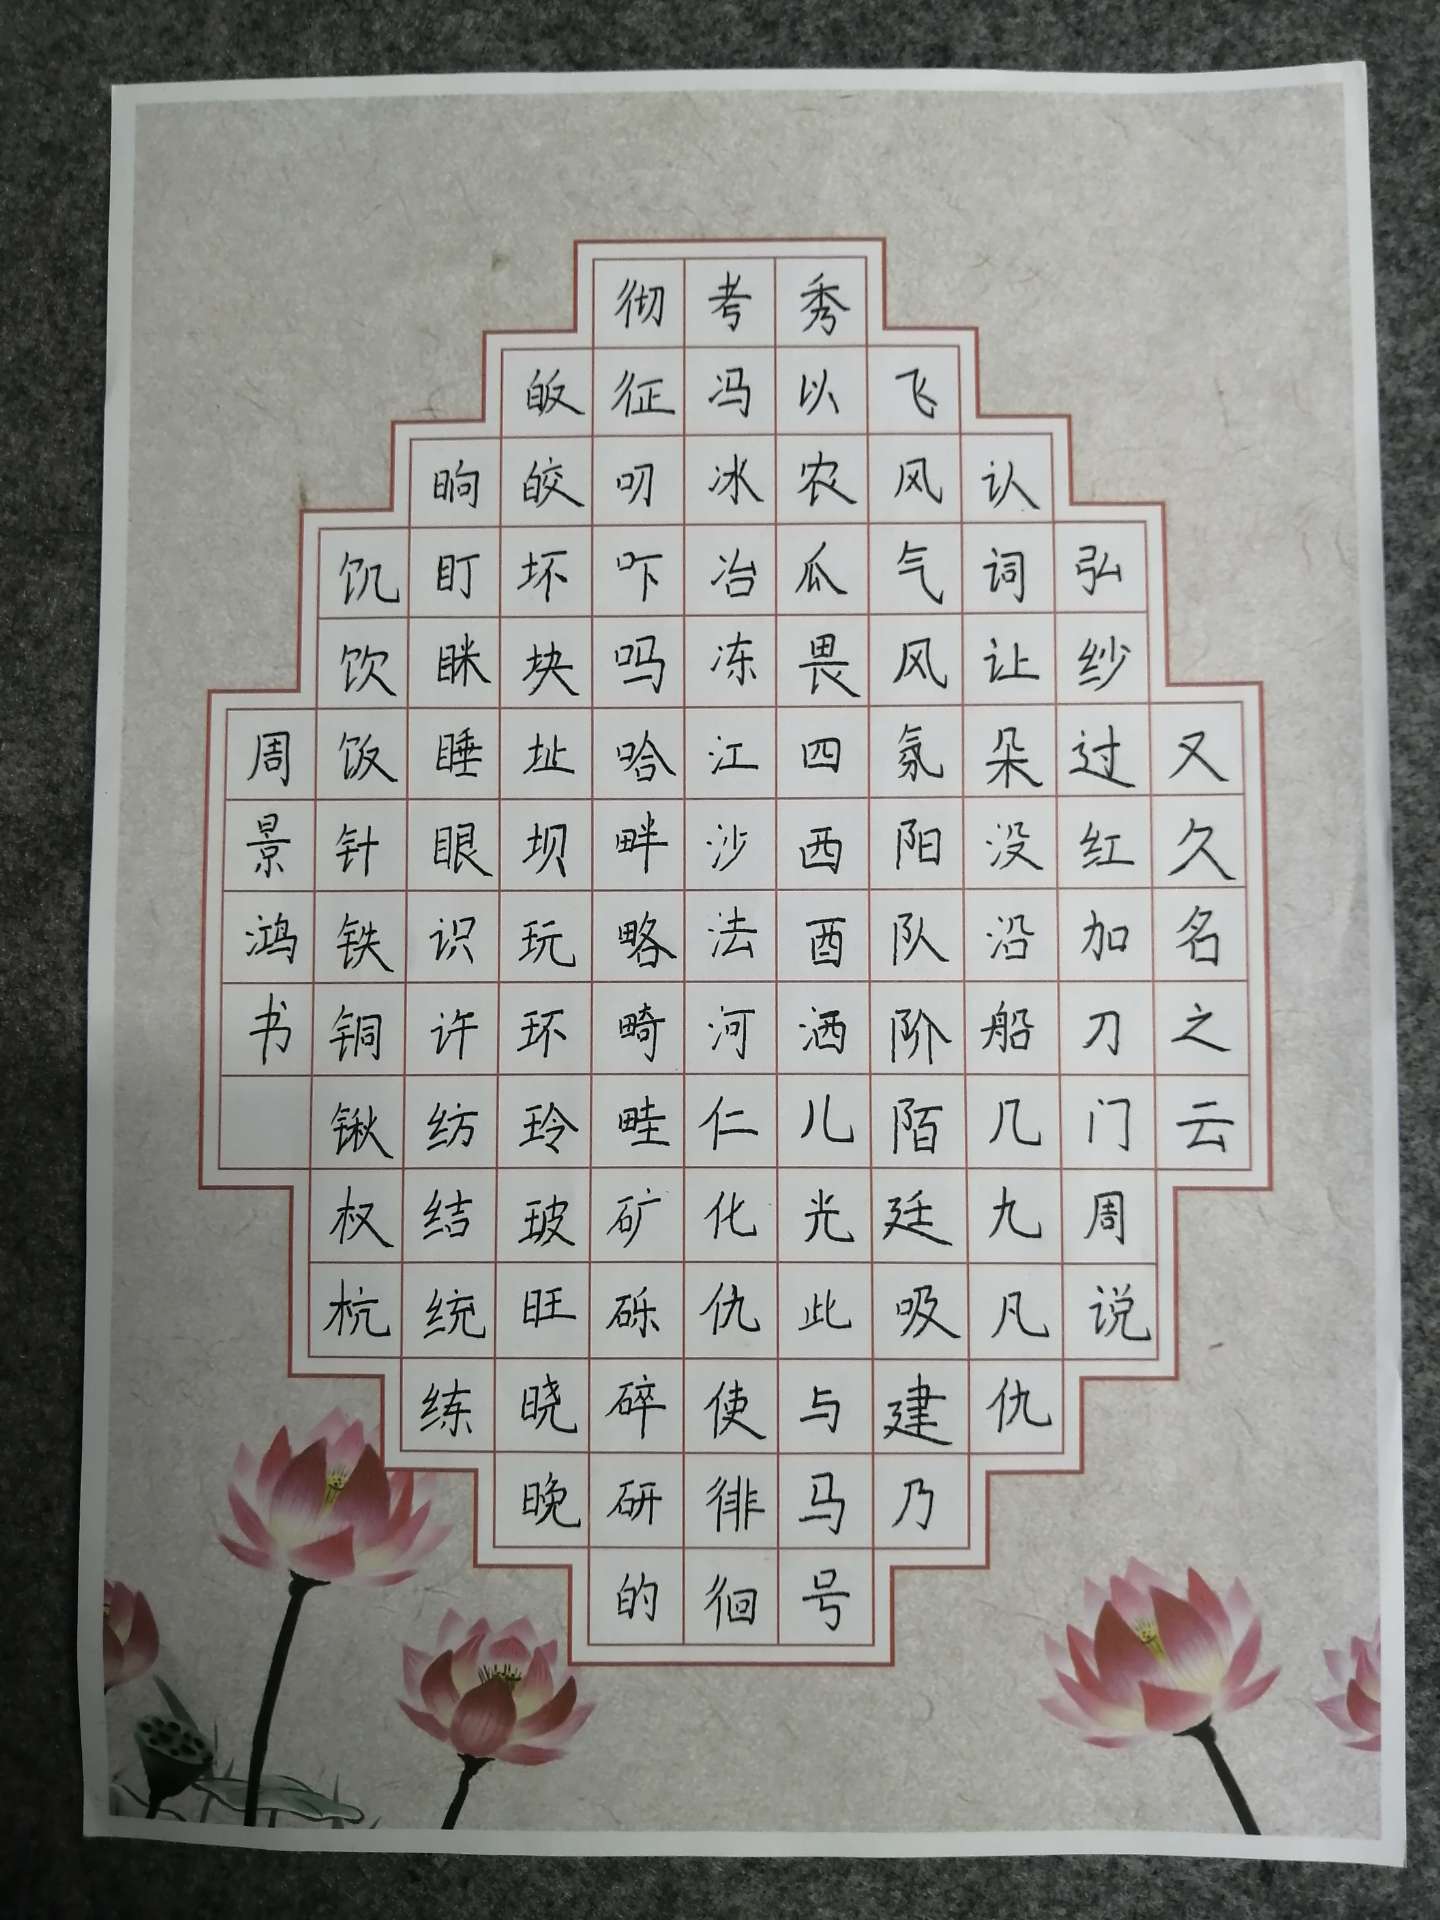 又久名之云
弘纱过红加刀门周说
认词让朵没沿船几九凡仇
飞风气风氛阳队阶陌廷吸建乃
秀以农瓜畏四西酉洒儿光此与马号
考冯冰冶冻江沙法河仁化仇使徘徊
彻征叨吓吗哈畔略畸畦矿砾碎研的
皈皎坏块址坝玩环玲玻旺晓晚
晌盯眯睡眼识许纺结统练
饥饮饭针铁铜锹权杭
周景鸿书